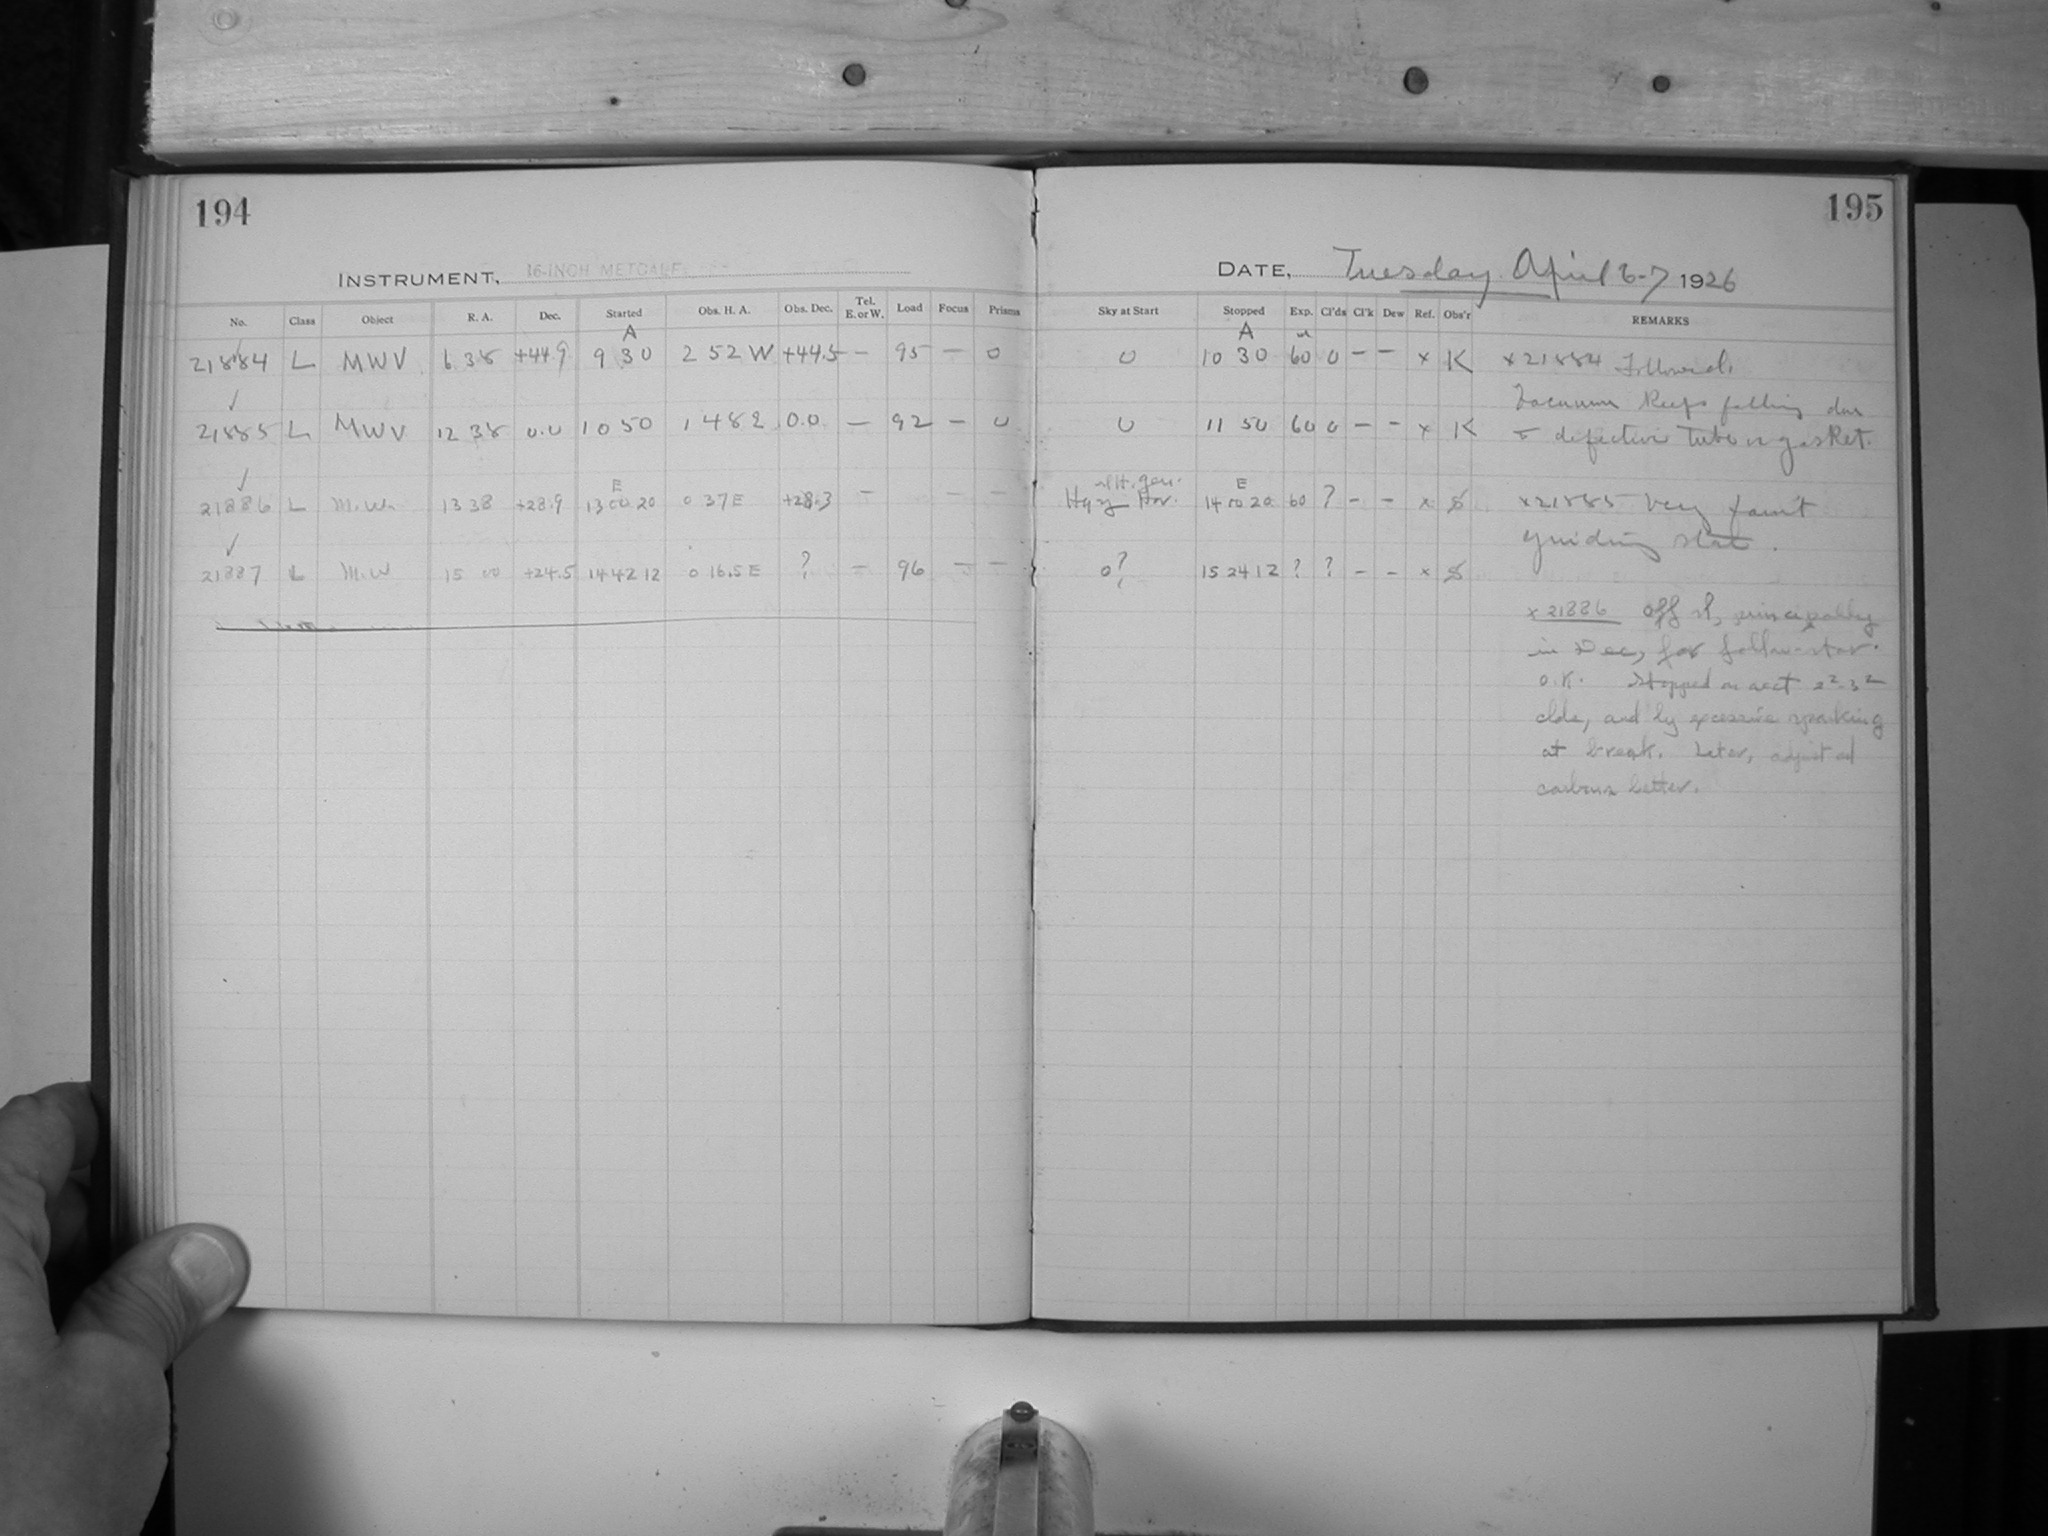 194
INSTRUMENT, 16-INCH METCALF
No. Class Object R. A. Dec. Started Obs. H. A. Obs. Dec. Tel. E. or W. Load Focus Prisms
A
21884 L MWV 6 38 +44.9 9 30 2 52 W +44.5 — 95 — 0
21885 L MWV 12 38 0.0 10 50 1 48 0.0 — 92 — 0
E
21886 L M.W. 13 38 +28.9 13 00 20 0 37 E +28.3 — — —
21887 L M.W 15 00 +24.5 14 42 12 0 16.5 E ? — 96 — —
195
DATE, Tuesday April 6-7 1926
Sky at Start Stopped Exp. Cl'ds Cl'k Dew Ref. Obs'r REMARKS
A
0 10 30 60 0 — — x K x 21884 Followed.
Vacuum keeps falling due
0 11 50 60 0 — — x K to defective tube or gasket.
E
Hazy Hor. 14 00 20 60 ? — — x S x 21885 Very faint
guiding star.
0? 15 24 12 ? ? — — x S
x 21886 Off principally
in Dec, for follow-star.
O.K. Stopped on acct
clds, and by excessive sparking
at break. Later, adjusted
carbons better.